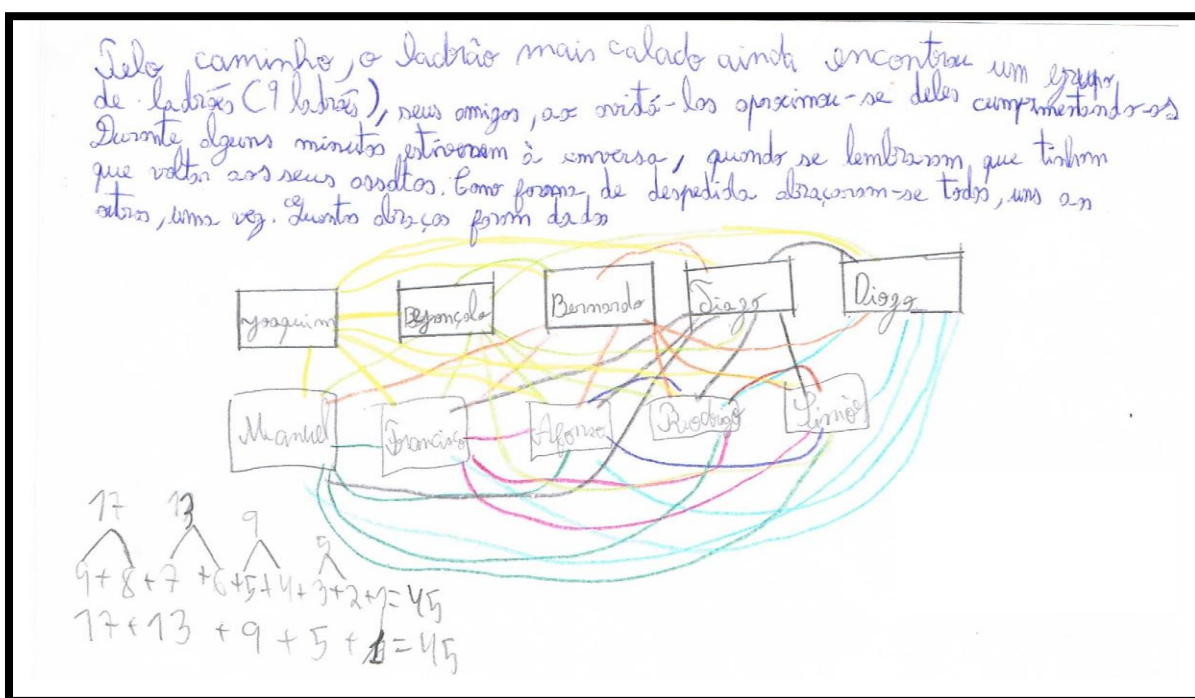 Pelo caminho, o ladrão mais calado ainda encontrou um grupo
de ladrões (9 ladrões), seus amigos, ao avistá-los aproximou-se deles cumprimentando-os
Durante alguns minutos estiveram à conversa, quando se lembraram que tinham
que voltar aos seus assaltos. Como forma de despedida abraçaram-se todos, uns aos
outros, uma vez. Quantos abraços foram dados
Joaquim Gonçalo Bernardo Tiago Diogo
Manuel Francisco Afonso Rodrigo Simão
17 13 9 5
9+8+7+6+5+4+3+2+1=45
17+13+9+5+1=45